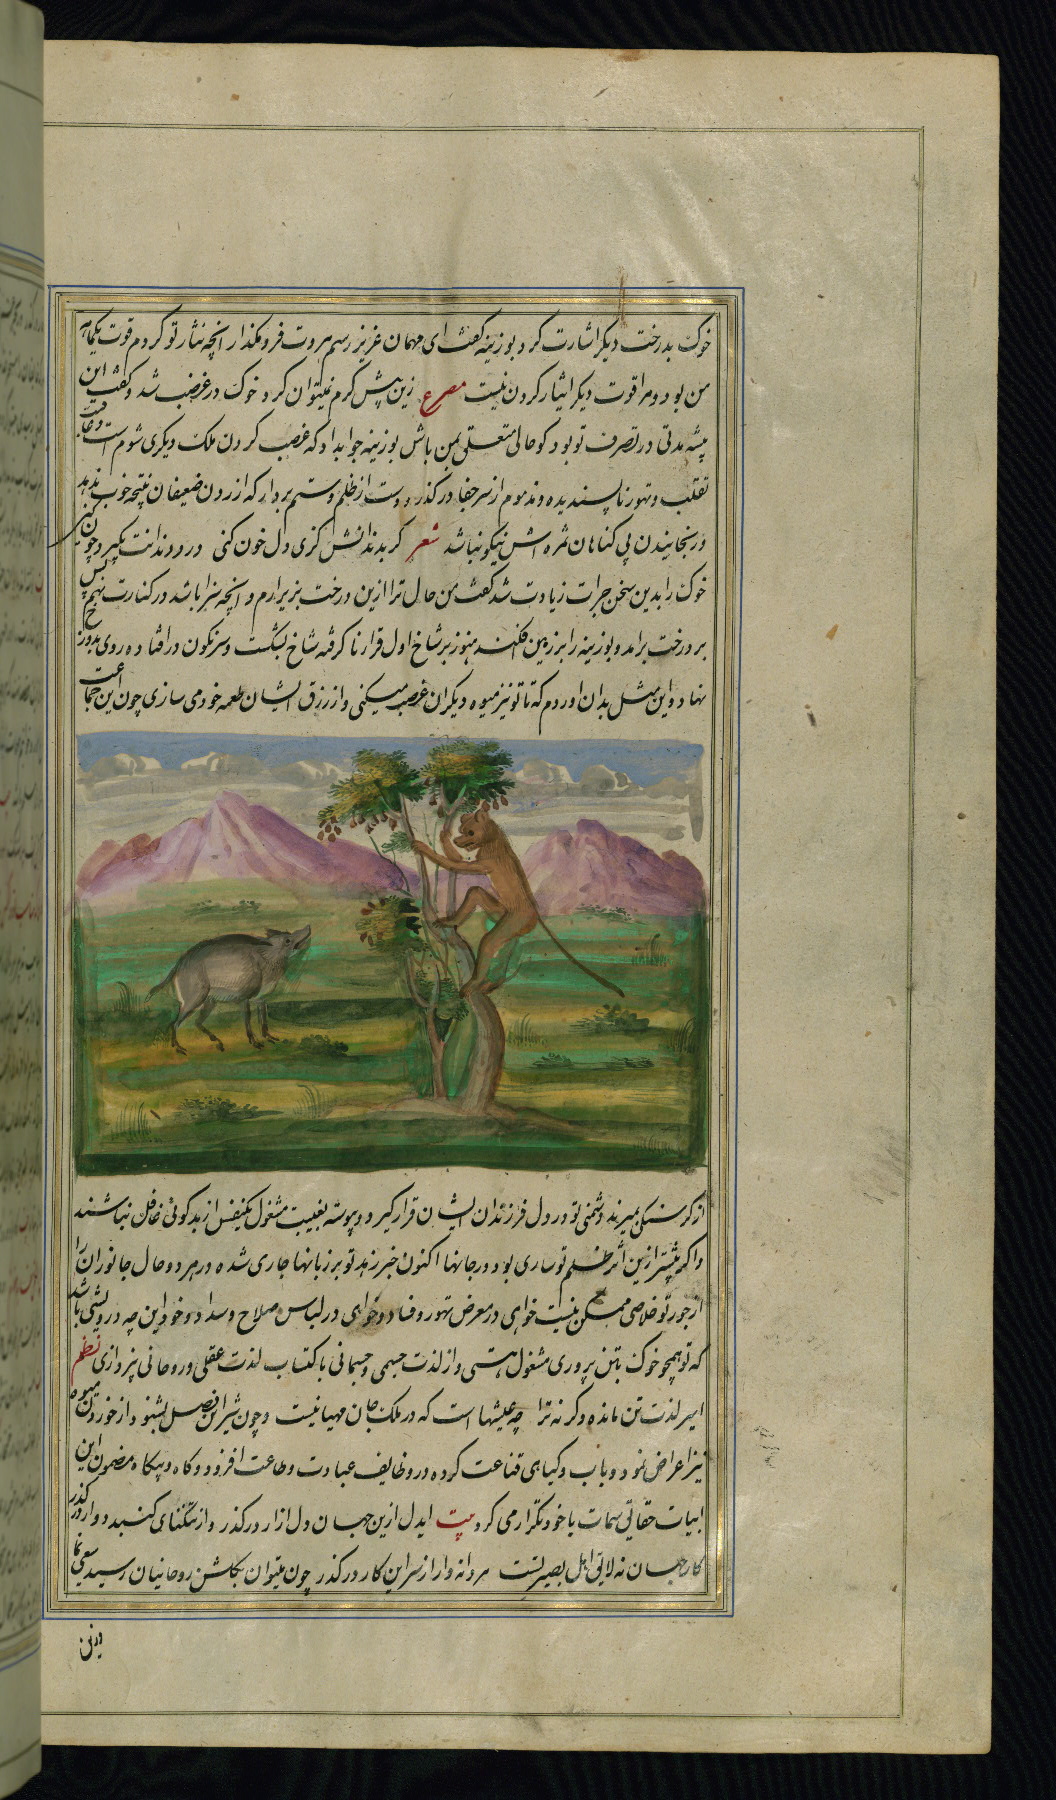 خوک بدرخت دیکر اشارت کرد بوزینه کفت ای مهمان عزیز رسم مروت فرو مکذار انچه نثار تو کردم قوت یکماهه
من بود و مرا قوت دیکر ایثار کردن نیست مصرع زین پیش کرم نمیتوان کرد خوک در غضب شد و کفت این
بیشه مدتی در تصرف تو بود کو حالی متعلق بمن باش بوزینه جوابداد که غصب کردن ملک دیکری شوم است و عاقبت
تغلب و تهور ناپسندیده و مذموم از سر جفا درکذر و دست از ظلم و ستم بردار که ازردن ضعیفان نتیجه خوب ندهد
و رنجانیدن بی کناهان ثمره اش نیکو نباشد شعر کر بدندانش کزی دل خون کنی درد دندانت بکیرد چون کنی
خوک را بدین سخن جرات زیادت شد کفت من حال ترا ازین درخت بزیر ارم و انچه سزا باشد در کنارت نهم پس
بر درخت برامد و بوزینه را بر زمین افکند هنوز بر شاخ اول قرار نا کرفته شاخ بشکست و سرنکون در افتاده روی بدوزخ
نهاد و این مثل بدان اوردم که تا تو نیز میوه دیکران غصب میکنی و از رزق ایشان طعمه خود می سازی چون این جماعت
از کرسنکی بمیرند دشمنی تو در دل فرزندان ایشان قرار کیرد و پیوسته بغیبت مشغول یکنفس از بدکوئی غافل نباشند
و اکر پیشتر ازین اثر ظلم تو ساری بود در جانها اکنون خبر زهد تو بر زبانها جاری شده در هر دو حال جانوران را
از جور تو خلاصی ممکن نیست خواهی در معرض تهور و فساد و خواهی در لباس صلاح و سداد و خود این چه درویشی باشد
که تو همچو خوک بتن پروری مشغول هستی و از لذت جسمی و جسمانی با کتساب لذت عقلی و روحانی نپردازی نظم
اسیر لذت تن مانده و کرنه ترا چه عیشها است که در ملک جان مهیا نیست و چون شیر این فصل بشنود از خوردن میوه
نیز اعراض نمود و باب و کیاهی قناعت کرده در وظایف عبادت و طاعت افزود و کاه و بیکاه مضمون این
ابیات حقائق سمات با خود تکرار می کرد بیت ایدل ازین جهان دل ازار درکذر و از تنکنای کنبد دوار درکذر
کار جهان نه لایق اهل بصیرتست مردانه وار از سر این کار درکذر چون میتوان بکلشن روحانیان رسید سعی نما